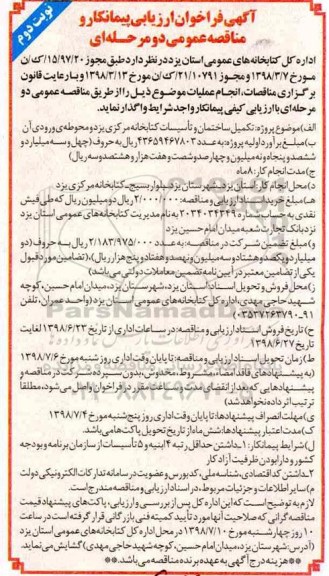 نوبت دوم
آگهی فراخوان ارزیابی پیمانکار و
مناقصه عمومی دو مرحله ای
اداره کل کتابخانه های عمومی استان یزد در نظر دارد طبق مجوز ۱۵/۹۷/۲۰/ک/ن
مورخ ۱۳۹۸/۳/۷ و مجوز ۲۱/۱۰۷۹۱/ک/ن مورخ ۱۳۹۸/۳/۱۳ و با رعایت قانون
برگزاری مناقصات، انجام عملیات موضوع ذیل را از طریق مناقصه عمومی دو
مرحله ای با ارزیابی کیفی پیمانکار واجد شرایط واگذار نماید.
الف) موضوع پروژه: تکمیل ساختمان و تأسیسات کتابخانه مرکزی یزد و محوطه ی ورودی آن
ب) مبلغ برآورد اولیه پروژه: به عدد ۴۳۶۵۹۴۶۷۸۰۳ ریال به حروف (چهل و سه میلیارد و
ششصد و پنجاه و نه میلیون و چهارصد و شصت و هفت هزار و هشتصد و سه ریال)
ج) مدت انجام کار: ۸ ماه
د) محل انجام کار: استان یزد- شهرستان یزد- بلوار بسیج- کتابخانه مرکزی یزد
هـ) مبلغ خرید اسناد ارزیابی و مناقصه: ۲/۰۰۰/۰۰۰ ریال دو میلیون ریال که طی فیش
نقدی به حساب شماره به نام مدیریت کتابخانه های عمومی استان یزد
نزد بانک تجارت شعبه میدان امام حسین یزد
و) مبلغ تضمین شرکت در مناقصه: به عدد ۲/۱۸۳/۹۷۵/۰۰۰ ریال به حروف (دو
میلیارد و یکصد و هشتاد و سه میلیون و نهصد و هفتاد و پنج هزار ریال)، (تضامین مورد قبول
یکی از تضامین معتبر در آیین نامه تضمین معاملات دولتی می باشد)
ز) محل فروش و تحویل اسناد: استان یزد، شهرستان یزد، میدان امام حسین، کوچه
شهید حاجی مهدی، اداره کل کتابخانه های عمومی استان یزد (واحد عمران، تلفن
۹۱-۰۳۵۳۷۲۶۳۷۹۰)
ح) تاریخ فروش اسناد ارزیابی و مناقصه: در ساعات اداری از تاریخ ۱۳۹۸/۶/۲۳ لغایت
تاریخ ۱۳۹۸/۶/۲۷
ط) زمان تحویل اسناد ارزیابی و مناقصه: تا پایان وقت اداری روز شنبه مورخ ۱۳۹۸/۷/۶
(به پیشنهادهای فاقد امضاء، مشروط، مخدوش، بدون سپرده شرکت در مناقصه و
پیشنهادهایی که بعد از انقضای مدت و ساعت مقرر در فراخوان واصل می شود، مطلقا
ترتیب اثر داده نخواهد شد)
ی) مهلت انصراف پیشنهادها: تا پایان وقت اداری روز پنج شنبه مورخ ۱۳۹۸/۷/۴
ک) مدت اعتبار پیشنهادها: شش ماه از تاریخ تحویل پاکت ها می باشد.
ل) شرایط پیمانکار: ۱_داشتن حداقل رتبه ۴ ابنیه و ۵ تأسیسات از سازمان برنامه و بودجه
کشور و دارا بودن ظرفیت آزاد کار
۲_داشتن کد اقتصادی، شناسه ملی، کد بورس و عضویت در سامانه تدارکات الکترونیکی دولت
م) سایر اطلاعات و جزئیات مربوط، در اسناد ارزیابی و مناقصه مندرج است.
لازم به توضیح است که این اداره کل پس از بررسی و ارزیابی، پاکت های پیشنهاد قیمت
مناقصه گرانی که صلاحیت آنها مورد تأیید کمیته فنی بازرگانی قرار گرفته است در ساعت
۱۰ روز چهارشنبه مورخ ۱۳۹۸/۷/۱۰ در محل اداره کل کتابخانه های عمومی استان یزد
(آدرس: شهرستان یزد، میدان امام حسین، کوچه شهید حاجی مهدی) گشایش می نماید.
**هزینه درج آگهی به عهده برنده مناقصه می باشد.**
ParsNamadData